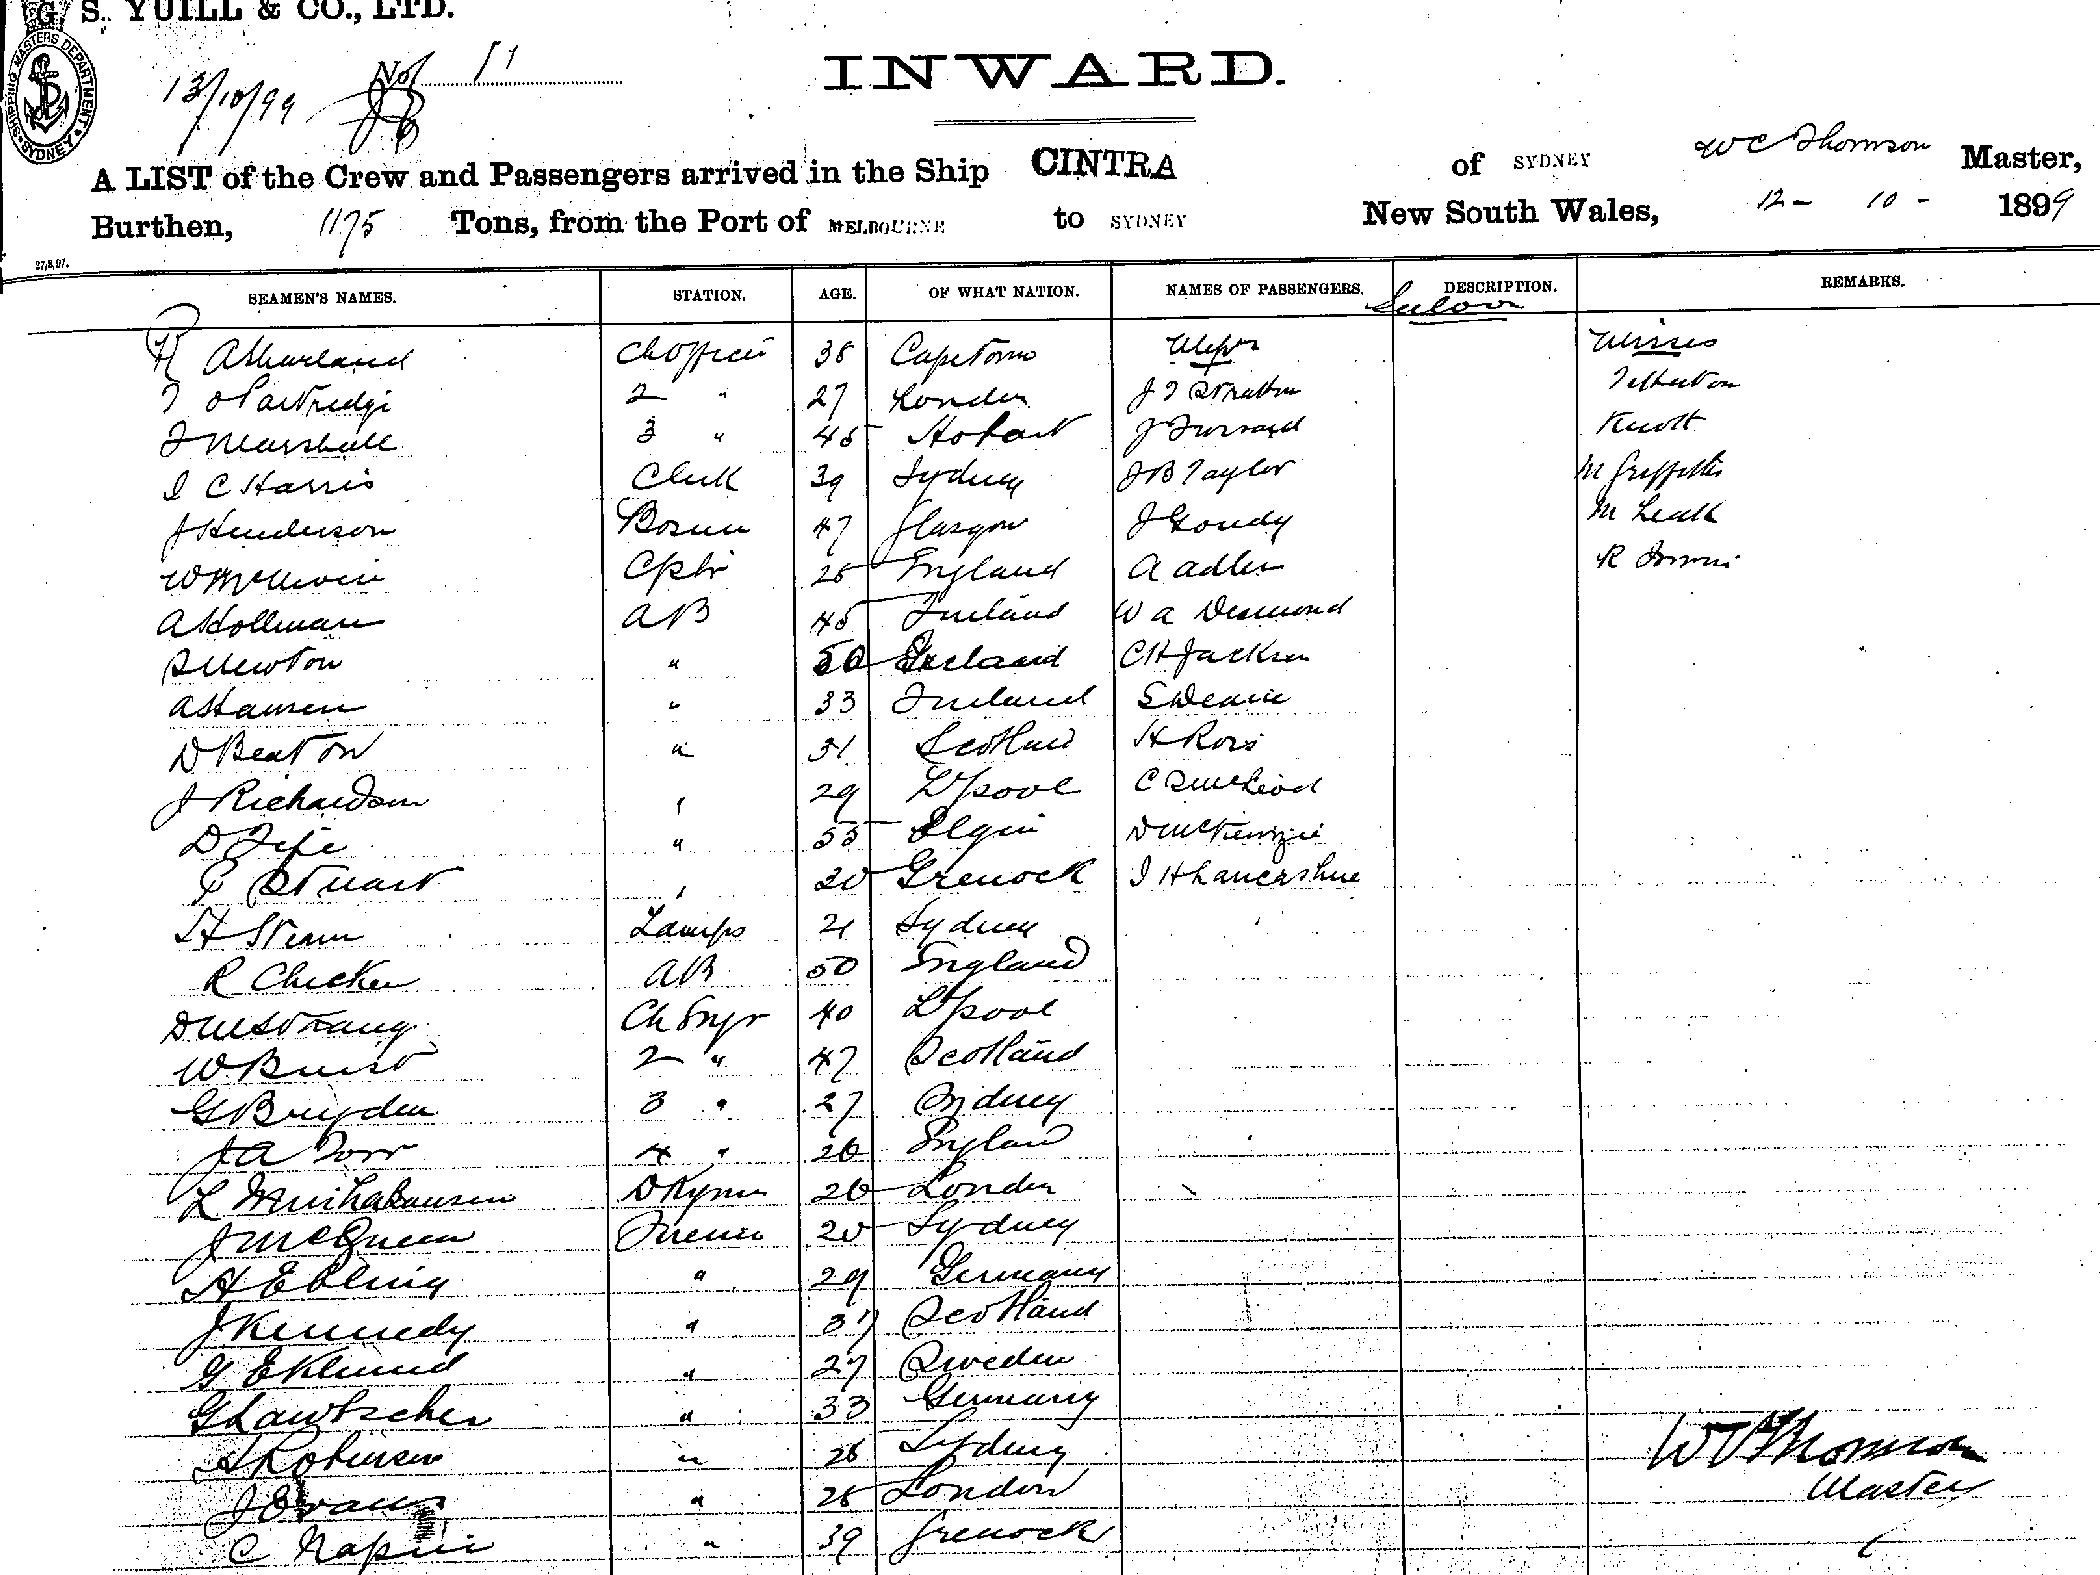 G. S. YUILL & CO., LTD.
SHIPPING MASTERS DEPARTMENT SYDNEY
13/10/99 No/ 11
INWARD.
A LIST of the Crew and Passengers arrived in the Ship CINTRA of SYDNEY W C Thomson Master,
Burthen, 1175 Tons, from the Port of MELBOURNE to SYDNEY New South Wales, 12 - 10 - 1899
27,8,97.
SEAMEN'S NAMES. STATION. AGE. OF WHAT NATION. NAMES OF PASSENGERS. DESCRIPTION. REMARKS.
Saloon
Ch Officer Capetown Messrs Misses
Partridge 2 " 27 London J T Stratton
J Marshall 3 " 45 Hobart J Knott
C Harris Clerk 39 Sydney J B Taylor M Griffiths
J Henderson Bosun 47 Glasgow J Goudy M Leask
W Cptr 25 England A Adler R
A Hollman AB 45 Finland W A Desmond
S Newton " 50 Ireland C H Jackson
A Hansen " 33 Finland S Deane
D Beaton " 31 Scotland H Ross
J Richardson " 29 L'pool C S McLeod
D Fife " 55 Elgin D McKenzie
P Stuart " 20 Grenock J H Lancashire
H Lamps 21 Sydney
R Chicken AB 50 England
D M Strang Ch Engr 40 L'pool
W Buist 2 " 47 Scotland
G Bryden 3 " 27 Sydney
J A Torr 4 " 26 England
L Dkyman 26 London
J McQueen Firemen 20 Sydney
H Ebling " 29 Germany
J Kennedy " 37 Scotland
G Eklund " 27 Sweden
G Lawtscher " 33 Germany
Robinson " 25 Sydney
J Evans " 25 London
C Napier " 39 Grenock
W C Thomson
Master